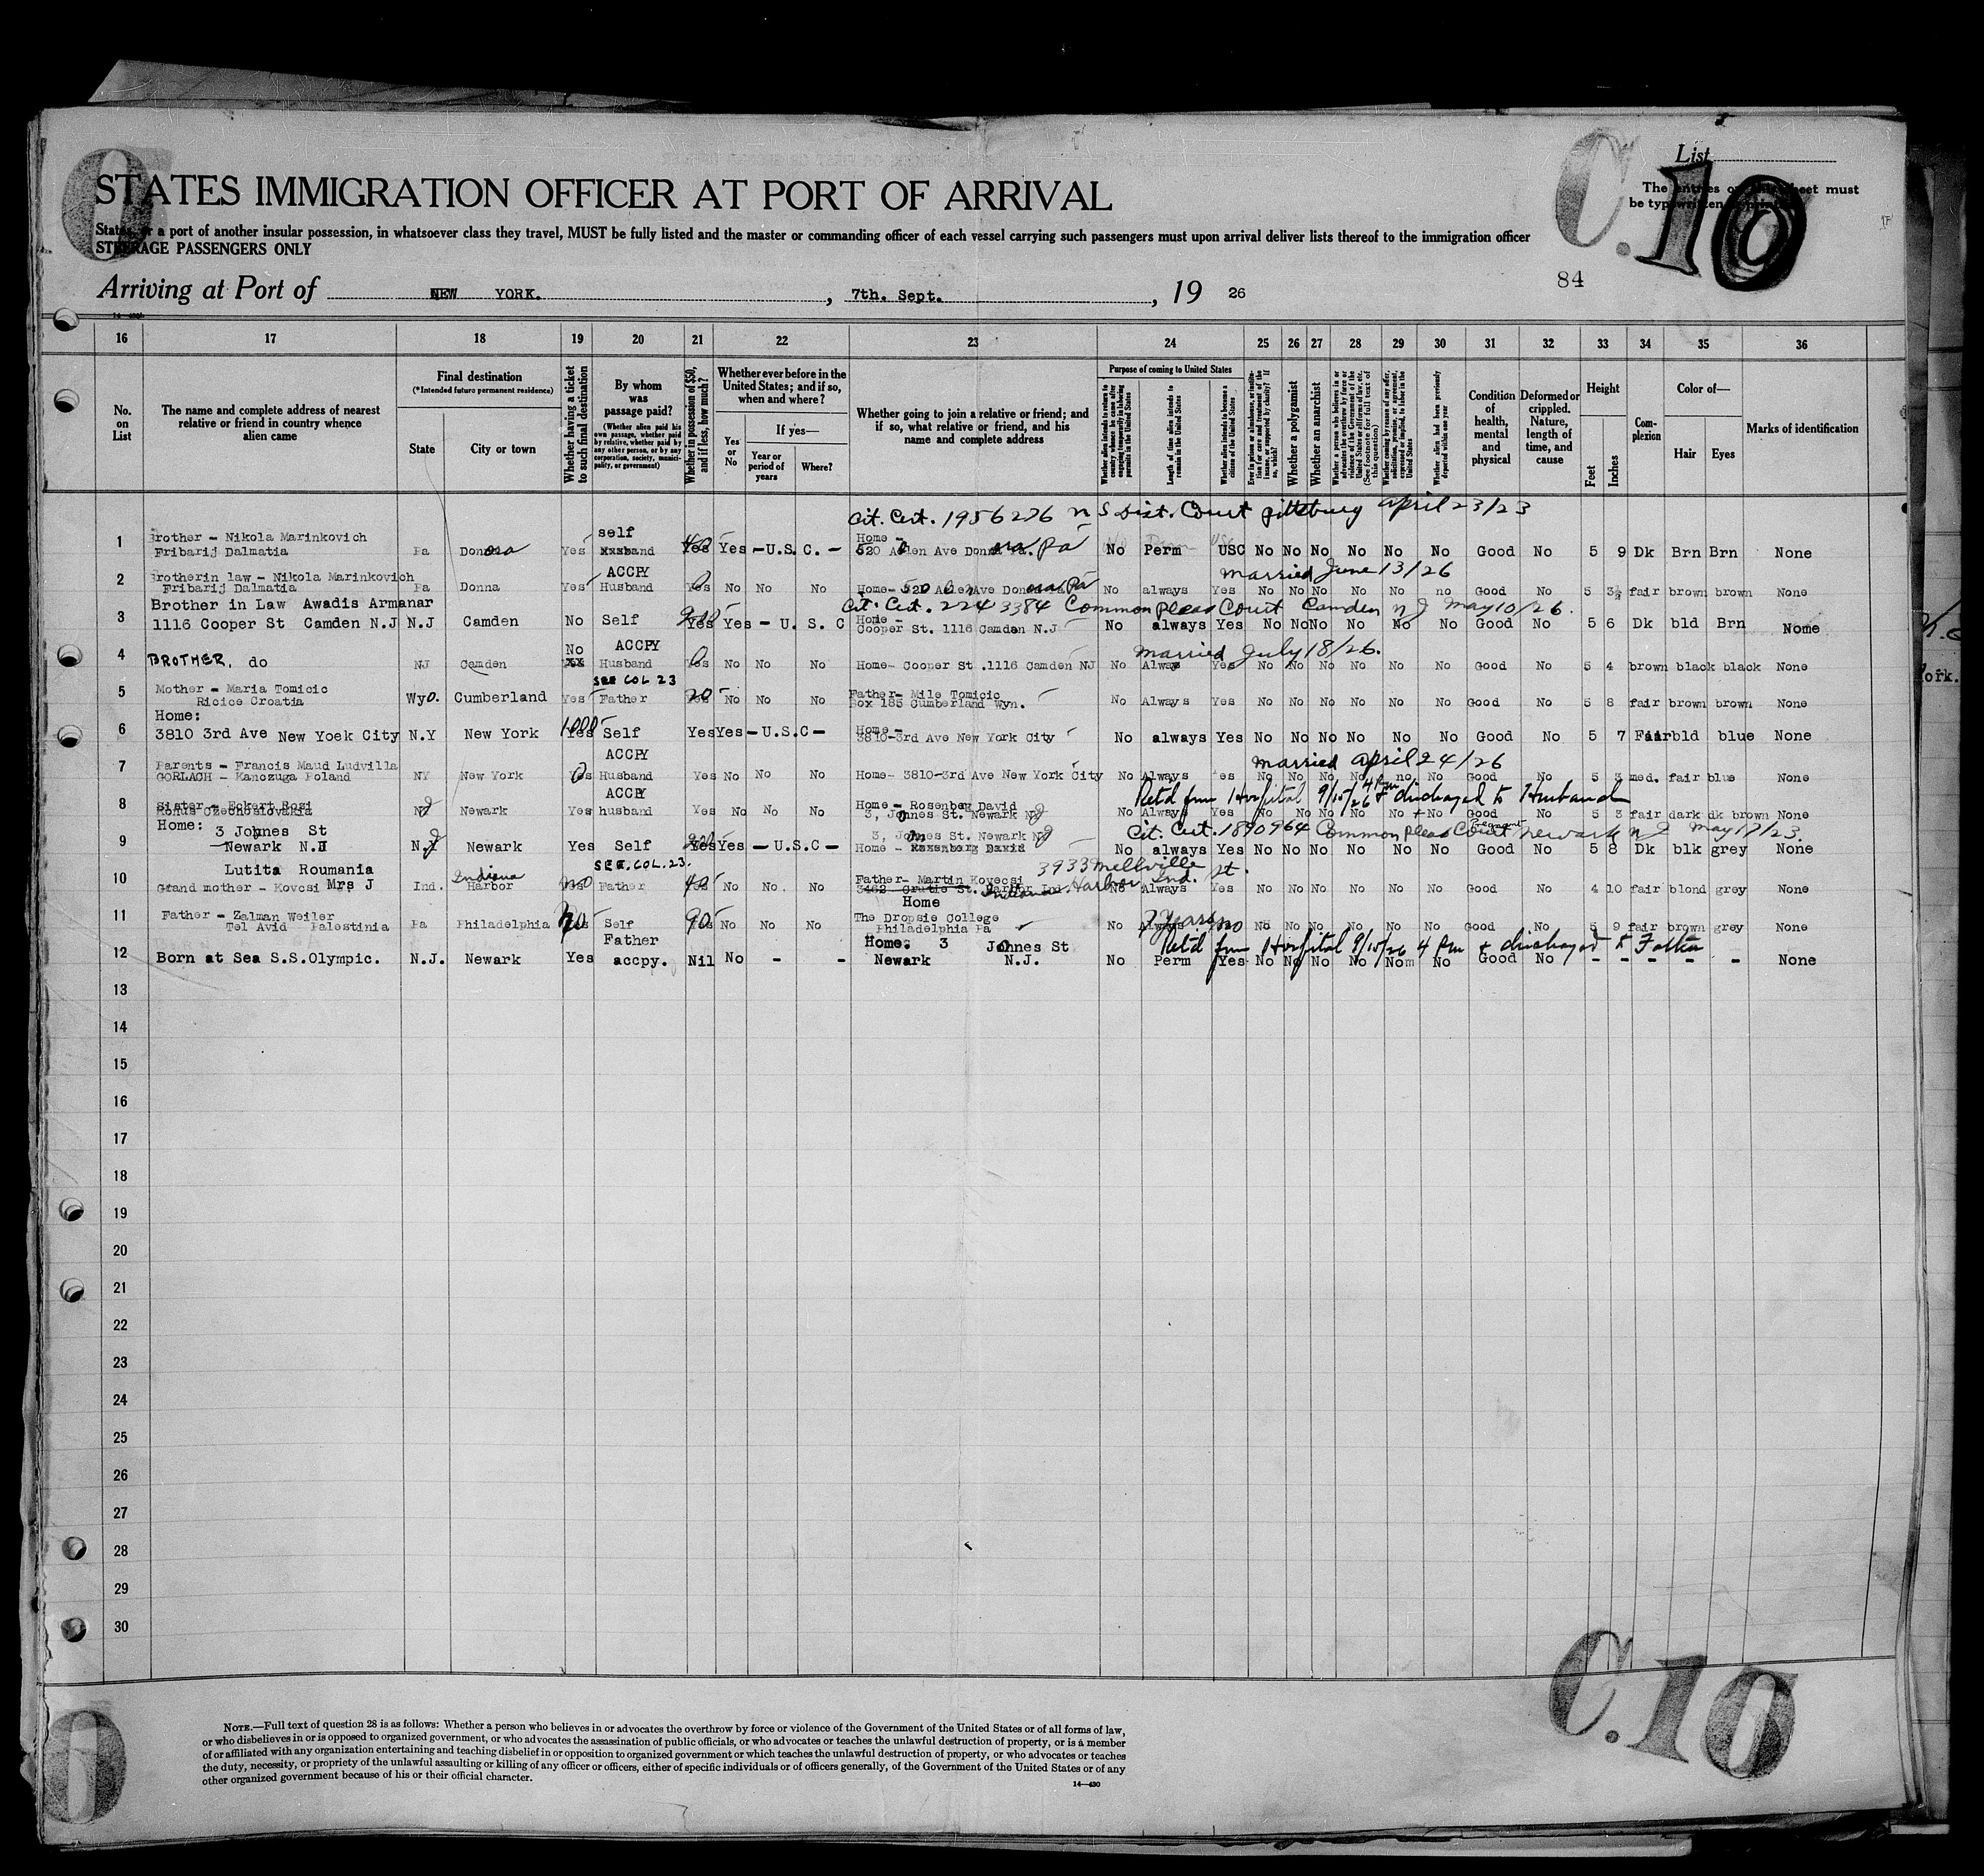 List
C.10
The entries on this sheet must
be typewritten or printed
STATES IMMIGRATION OFFICER AT PORT OF ARRIVAL
States, or a port of another insular possession, in whatsoever class they travel, MUST be fully listed and the master or commanding officer of each vessel carrying such passengers must upon arrival deliver lists thereof to the immigration officer
STEERAGE PASSENGERS ONLY
84
Arriving at Port of NEW YORK. , 7th. Sept. , 19 26
16 17 18 19 20 21 22 23 24 25 26 27 28 29 30 31 32 33 34 35 36
No. on List
The name and complete address of nearest relative or friend in country whence alien came
Final destination
(*Intended future permanent residence)
State
City or town
Whether having a ticket to such final destination
By whom was passage paid?
(Whether alien paid his own passage, whether paid by relative, whether paid by any other person, or by any corporation, society, municipality, or government)
Whether in possession of $50, and if less, how much?
Whether ever before in the United States; and if so, when and where?
Yes or No
If yes—
Year or period of years
Where?
Whether going to join a relative or friend; and if so, what relative or friend, and his name and complete address
Purpose of coming to United States
Length of time alien intends to remain in the United States
Whether alien intends to become a citizen of the United States
Whether a polygamist
Whether an anarchist
Condition of health, mental and physical
Deformed or crippled. Nature, length of time, and cause
Height
Feet
Inches
Complexion
Color of—
Hair
Eyes
Marks of identification
Cit. Cert. 1956276 Dist. Court Pittsburg April 23/23
1 Brother - Nikola Marinkovich
Fribarij Dalmatia Pa Donora Yes self Yes Yes - U.S. C. - Home - Ave Pa No Perm USC No No No No No No Good No 5 9 Dk Brn Brn None
married June 13/26
2 Brotherin law - Nikola Marinkovich
Fribarij Dalmatia Pa Donna Yes ACCPY Husband 0 No No No Home- 520 Ave Donora Pa No always Yes No No No No No no Good No 5 3½ fair brown brown None
Cit. Cert. 2243384 Common Pleas Court Camden NJ May 10/26.
3 Brother in Law Awadis Armanar
1116 Cooper St Camden N.J N.J Camden No Self Yes Yes - U. S. C Home -
Cooper St. 1116 Camden N.J No always Yes No No No No No No Good No 5 6 Dk bld Brn None
married July 18/26.
4 BROTHER, do NJ Camden No ACCPY Husband 0 No No No Home- Cooper St .1116 Camden NJ No Always Yes No No No No No No Good No 5 4 brown black black None
SEE COL 23
5 Mother - Maria Tomicic
Ricice Croatia Wyo. Cumberland Yes Father 20 No No No Father- Mile Tomicic
Box 185 Cumberland Wyn. No Always Yes No No No No No No Good No 5 8 fair brown brown None
6 Home:
3810 3rd Ave New Yoek City N.Y New York Yes 1000 Self Yes Yes - U.S.C - Home -
3810-3rd Ave New York City No always Yes No No No No No No Good No 5 7 Fair bld blue None
married April 24/26
7 Parents - Francis Maud Ludvilla
GORLACH - Kanczuga Poland NY New York Yes ACCPY Husband Yes No No No Home- 3810-3rd Ave New York City No Always Yes No No No No no No Good No 5 3 med. fair blue None
Ret'd from Hospital 9/15/26 4 Pm + discharged to Husband
8 Sister - Eckert Rosi
Czechoslovakia NJ Newark Yes ACCPY husband Yes No No No Home - Rosenberg David
3, Johnes St. Newark NJ No Always Yes No No No No No No Good No 5 3 fair dark dk brown None
Pregnant
Cit. Cert. 1890964 Common Pleas Court Newark NJ May 17/23.
9 Home:
3 Johnes St
Newark N.J N.J Newark Yes Self Yes Yes - U.S.C - 3, Johnes St. Newark NJ
Home - Rosenberg David No always Yes No No No No No No Good No 5 8 Dk blk grey None
10 Lutita Roumania
Grand mother - Kovcsi Mrs J Ind. Indiana Harbor No SEE.COL.23. Father No No. No Father- Martin Kovecsi
3933 Mellville St.
Indiana Harbor Ind. No Always Yes No No No No No No Good No 4 10 fair blond grey None
11 Father - Zalman Weiler
Tel Avid Palestinia Pa Philadelphia No Self 90 No No No Home
The Dropsie College
Philadelphia Pa No years no No No No No No No Good No 5 9 fair brown grey None
Ret'd from Hospital 9/15/26 4 Pm + discharged to Father
12 Born at Sea S.S.Olympic. N.J. Newark Yes Father accpy. Nil No - - Home: 3 Johnes St
Newark N.J. No Perm Yes No No No No No No Good No - - - - - None
13
14
15
16
17
18
19
20
21
22
23
24
25
26
27
28
29
30
C.10
NOTE.—Full text of question 28 is as follows: Whether a person who believes in or advocates the overthrow by force or violence of the Government of the United States or of all forms of law,
or who disbelieves in or is opposed to organized government, or who advocates the assassination of public officials, or who advocates or teaches the unlawful destruction of property, or is a member
of or affiliated with any organization entertaining and teaching disbelief in or opposition to organized government or which teaches the unlawful destruction of property, or who advocates or teaches
the duty, necessity, or propriety of the unlawful assaulting or killing of any officer or officers, either of specific individuals or of officers generally, of the Government of the United States or of any
other organized government because of his or their official character.
14—430